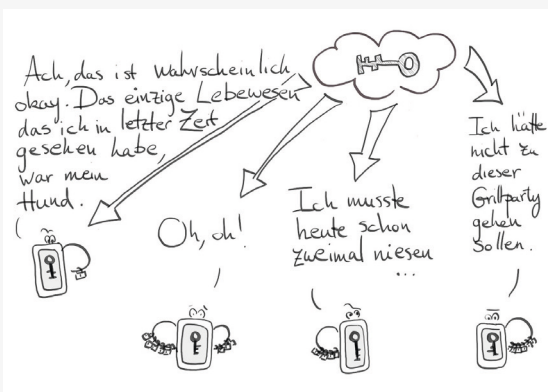 Ach, das ist wahrscheinlich
okay. Das einzige Lebewesen
das ich in letzter Zeit
gesehen habe,
war mein
Hund.
Oh, oh!
Ich musste
heute schon
zweimal niesen
...
Ich hätte
nicht zu
dieser
Grillparty
gehen
sollen.